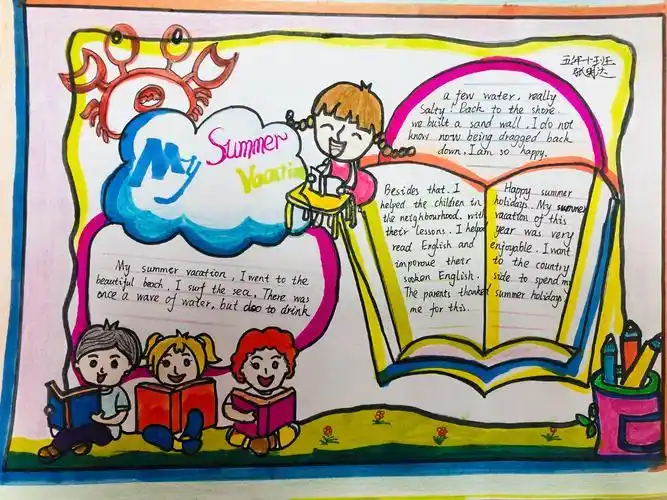 五年十班
My
Summer
Vacation
My summer vacation, I went to the
beautiful beach. I surf the sea, There was
once a wave of water, but also to drink
a few water, really
salty! Back to the shore
we built a sand wall, I do not
know now being dragged back
down, I am so happy.
Besides that. I
helped the children in
the neighbourhood, with
their lessons. I helped
read English and
imporove their
spoken English.
The parents thanked
me for this.
Happy summer
holidays. My summer
vacation of this
year was very
enjoyable. I want
to the country
side to spend my
summer holidays